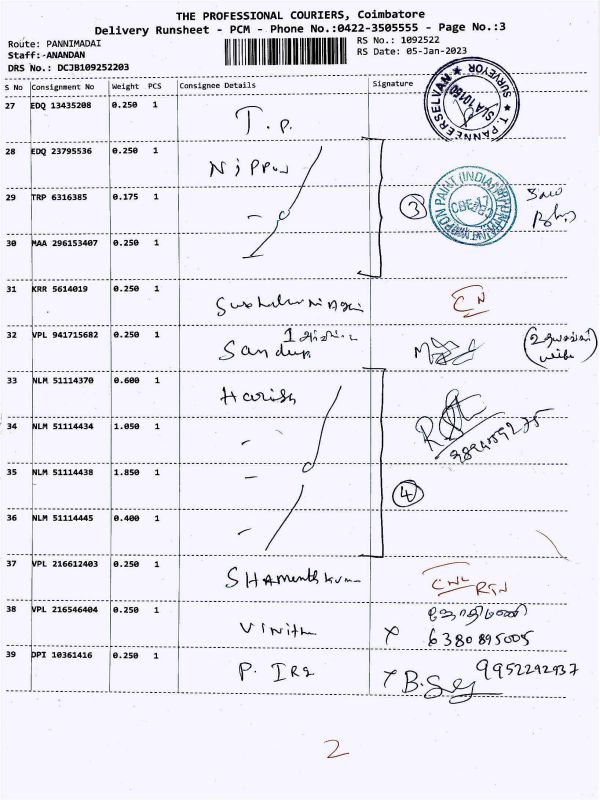 THE PROFESSIONAL COURIERS, Coimbatore
Delivery Runsheet - PCM - Phone No.:0422-3505555 - Page No.:3
Route: PANNIMADAI
RS No.: 1092522
Staff:-ANANDAN
RS Date: 05-Jan-2023
DRS No.: DCJB109252203
S No Consignment No Weight PCS Consignee Details Signature
27 EDQ 13435208 0.250 1 T.P.
T. PANNEERSELVAN SURVEYOR
28 EDQ 23795536 0.250 1 Nippon
29 TRP 6316385 0.175 1 3
NIPPON PAINT (INDIA)
30 MAA 296153407 0.250 1
31 KRR 5614019 0.250 1
32 VPL 941715682 0.250 1 Sandup
33 NLM 51114370 0.600 1 Harish
34 NLM 51114434 1.050 1
9894559275
35 NLM 51114438 1.850 1 4
36 NLM 51114445 0.400 1
37 VPL 216612403 0.250 1 RTN
38 VPL 216546404 0.250 1 Vinith X ஜோதிமணி
6380895005
39 DPI 10361416 0.250 1 P. X 9952292937
2